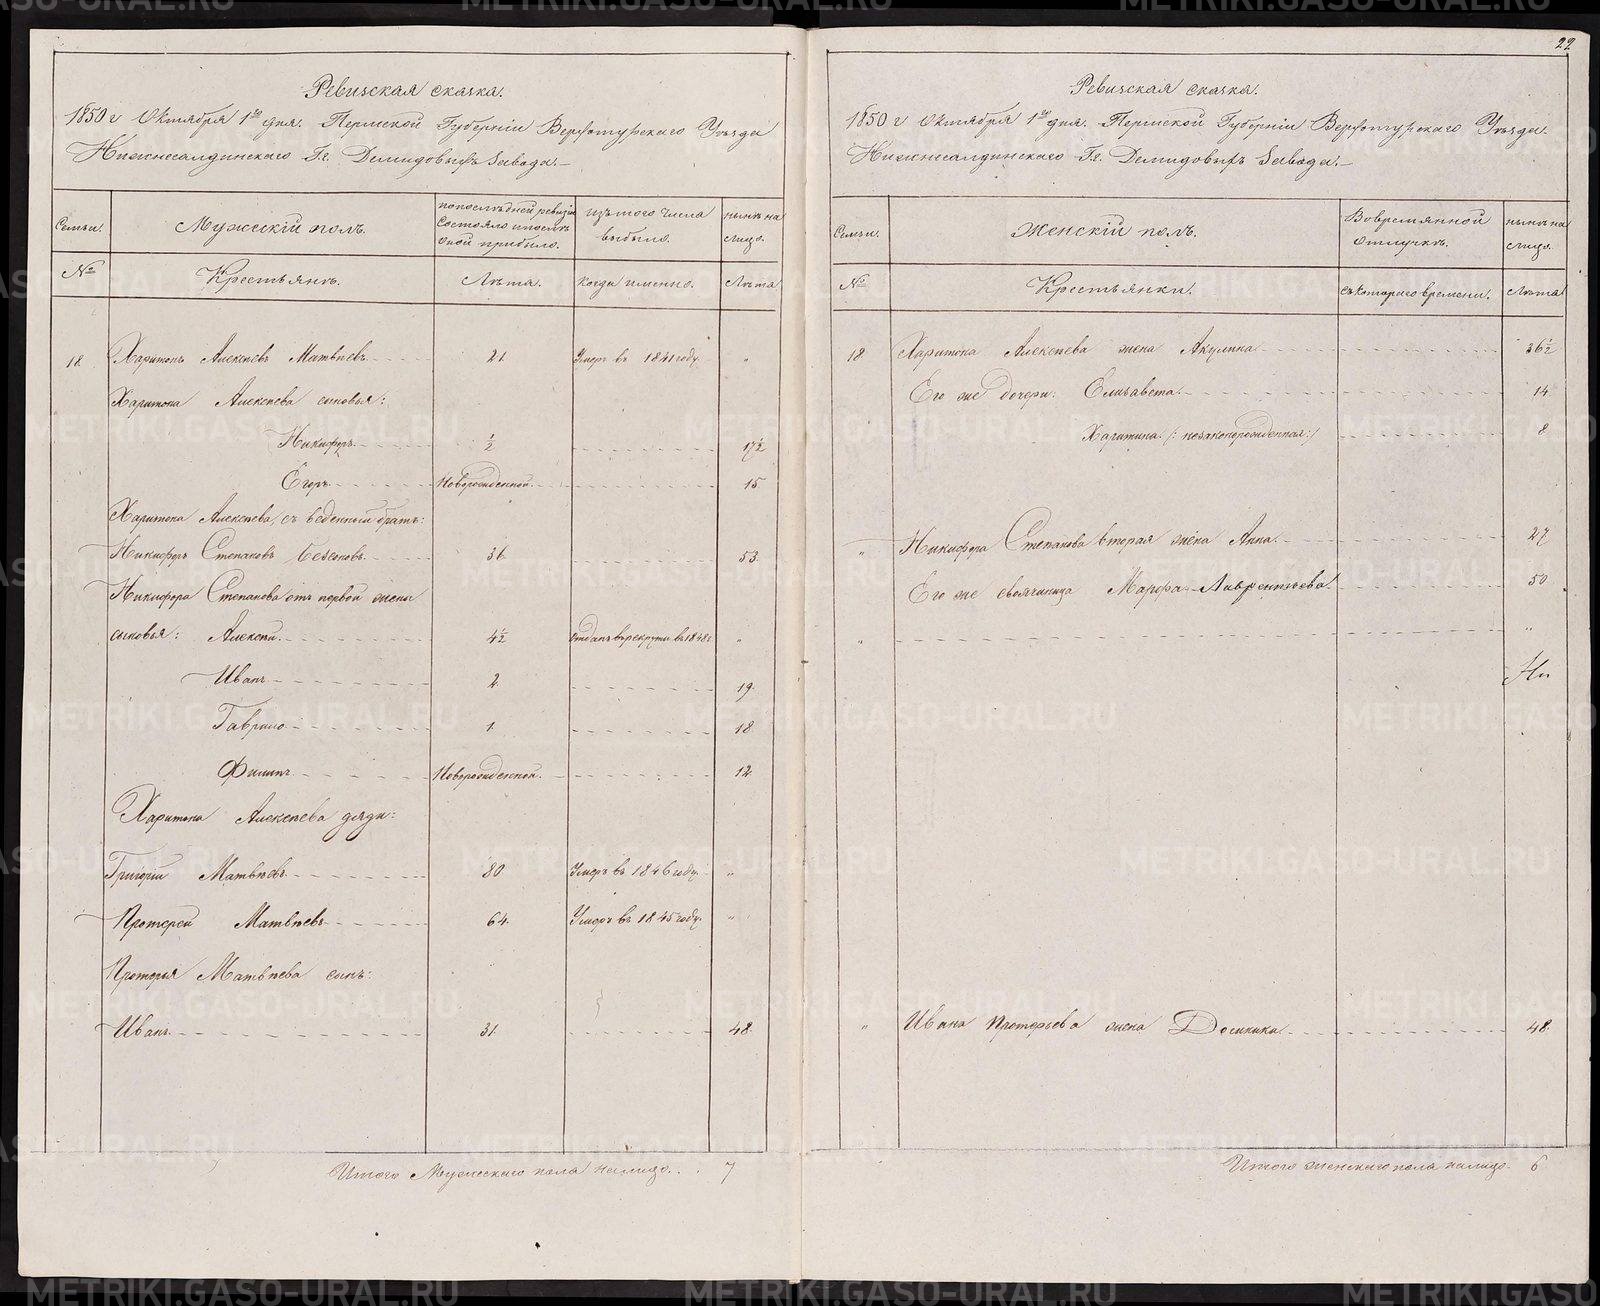 22
Ревизская сказка.
1850 г Октября 1го дня. Пермской Губернiи Верхотурскаго Уѣзда
Нижнесалдинскаго Гг. Демидовыхъ Завода.
Семьи. Мужескiй полъ. по послѣдней ревизiи состояло и послѣ оной прибыло. изъ того числа выбыло. нынѣ на лицо.
№ Крестьянъ. Лѣта. когда именно. Лѣта
18. Харитонъ Алексѣевъ Матвѣевъ 21. Умеръ въ 1841 году. "
Харитона Алексѣева сыновья:
Никифоръ ½ 17½
Егоръ Новорожденной. 15
Харитона Алексѣева, съ веденный братъ:
Никифоръ Степановъ 36. 53.
Никифора Степанова отъ первой жены
сыновья: Алексѣй 4½ отданъ въ рекруты въ 1848 г. "
Иванъ 2. 19.
Гаврило 1. 18
Филипъ Новорожденной. 12
Харитона Алексѣева дяди:
Григорiй Матвѣевъ 80. Умеръ въ 1846 году. "
Протерей Матвѣевъ 64. Умеръ въ 1845 году. "
Протерья Матвѣева сынъ:
Иванъ 31. 48.
Итого Мужескаго пола налицо. 7
Ревизская сказка.
1850 г Октября 1го дня. Пермской Губернiи Верхотурскаго Уѣзда.
Нижнесалдинскаго Гг. Демидовыхъ Завода.
Семьи. Женскiй полъ. Во временной отлучкѣ. нынѣ на лицо.
№ Крестьянки. съ котораго времени. Лѣта
18 Харитона Алексѣева жена Акулина 36½
Его же дочери: Елизавета. 14
Харитина (: незаконорожденная :) 8
" Никифора Степанова вторая жена Анна. 27
Его же свояченица Марфа Лаврентьева 50
" "
Ни
" Ивана Протерьева жена Домника 48.
Итого женскаго пола налицо. 6
METRIKI.GASO-URAL.RU